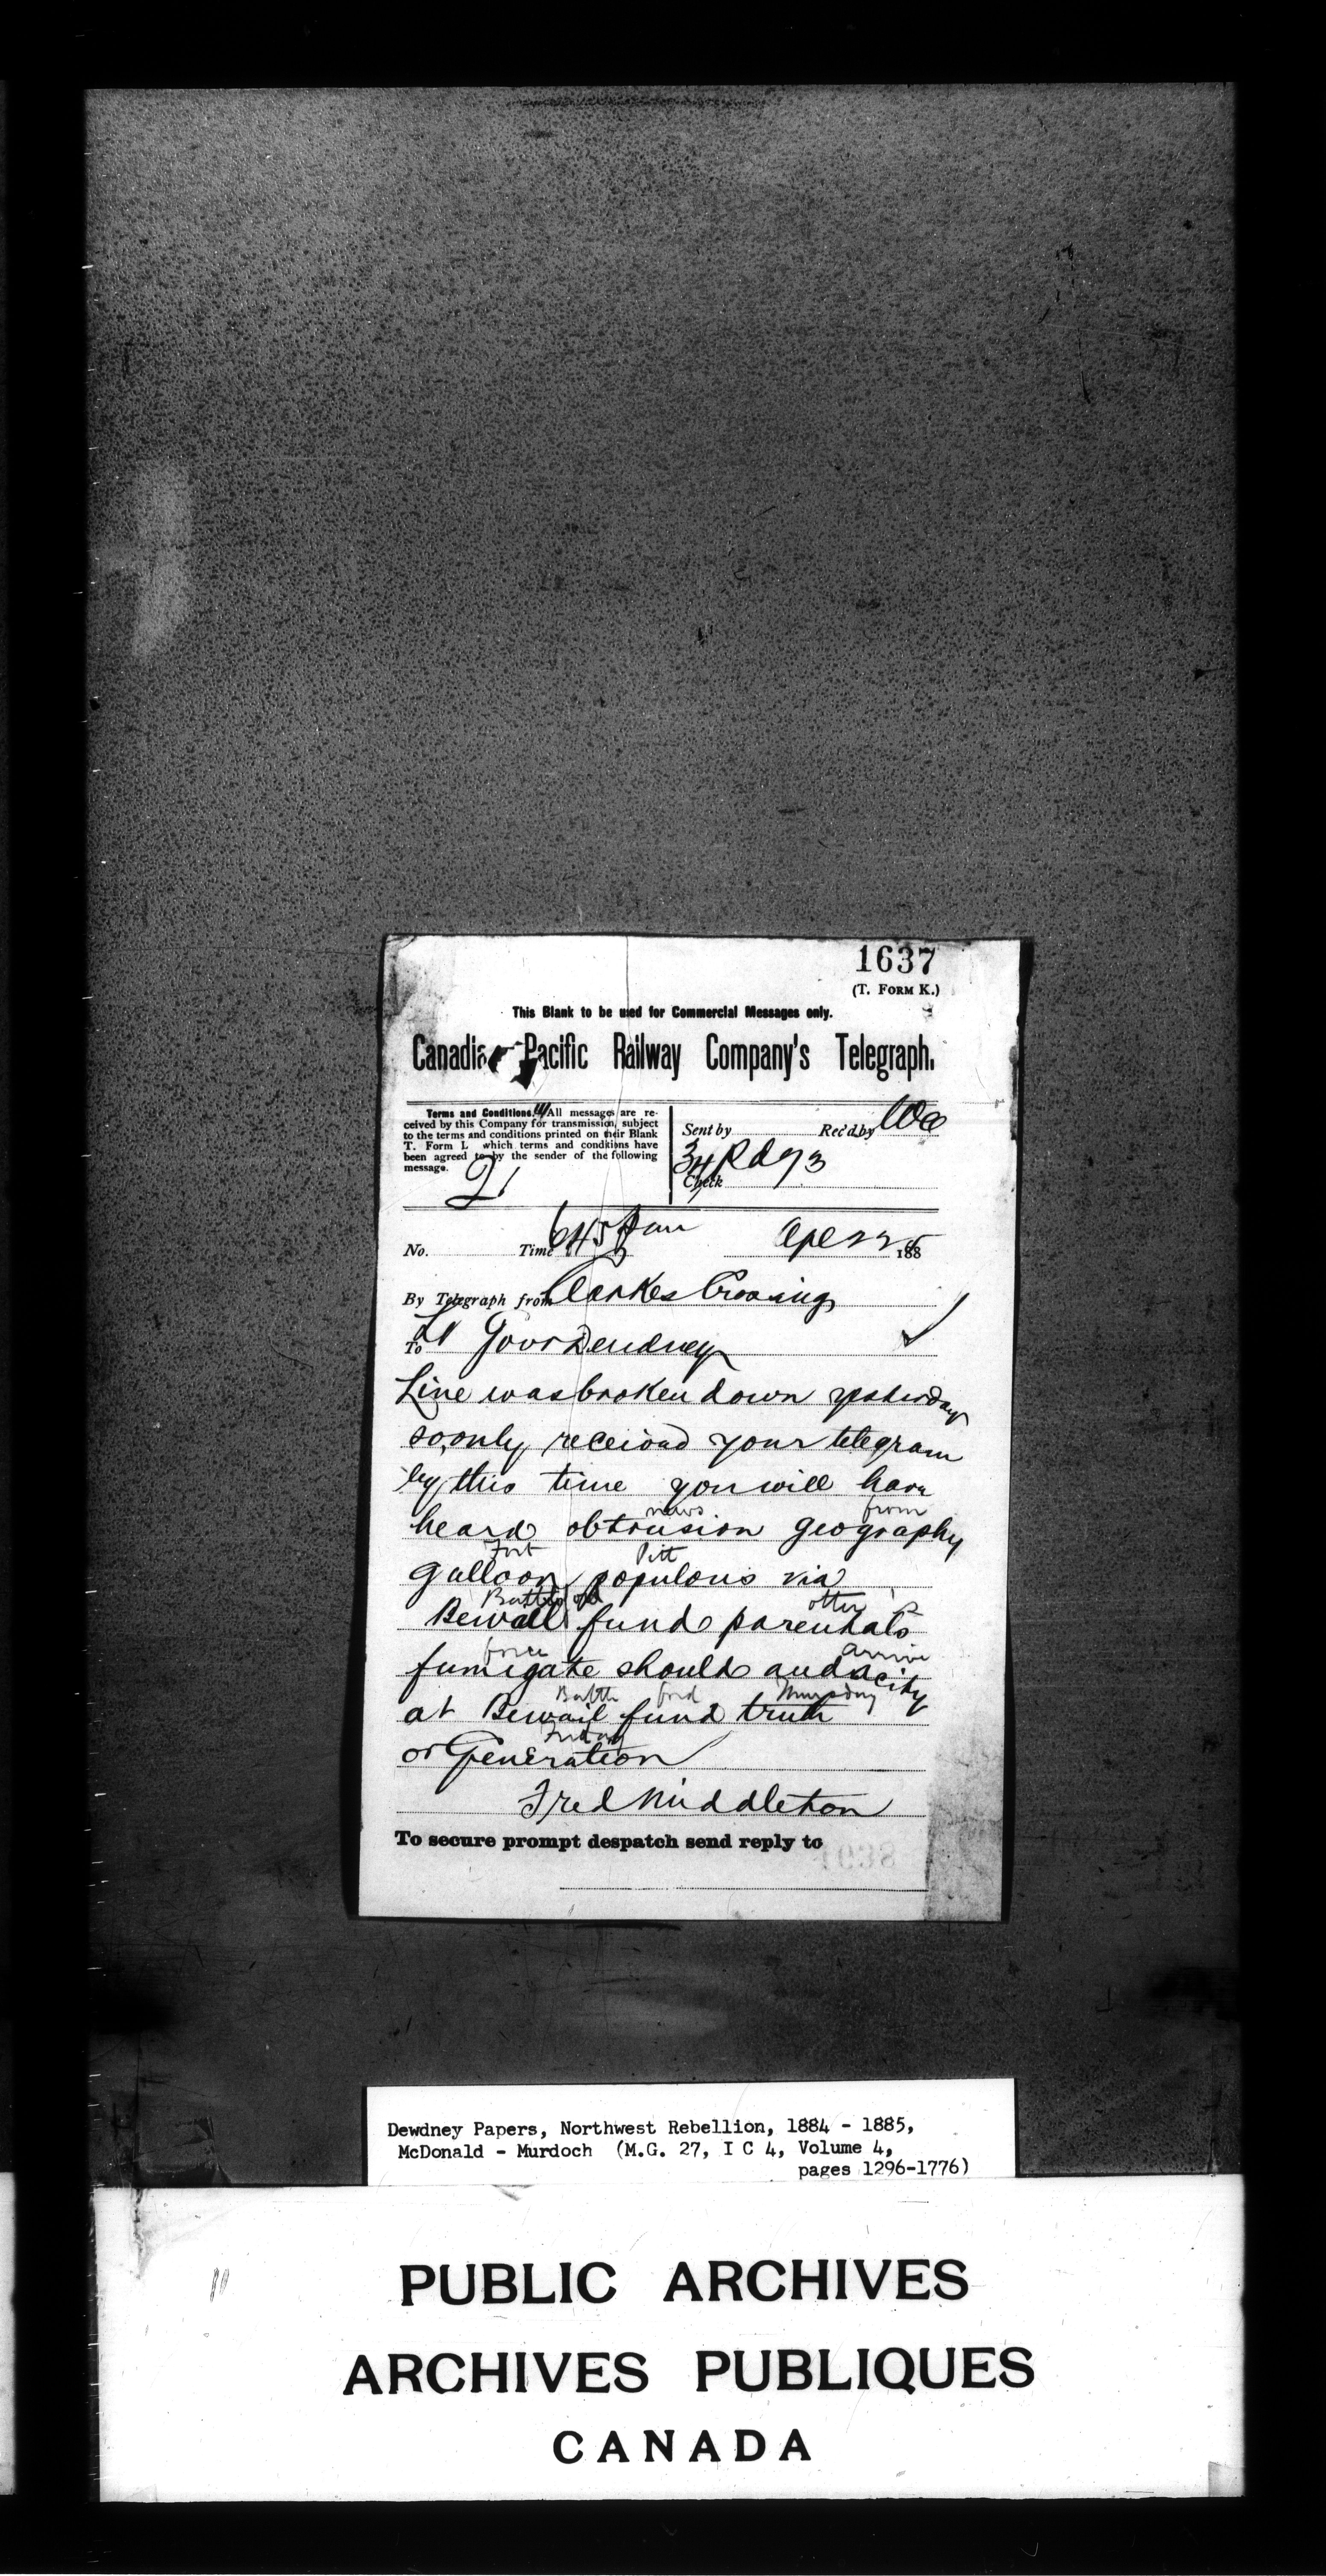 1637
(T. FORM K.)
This Blank to be used for Commercial Messages only.
Canadian Pacific Railway Company's Telegraph.
Terms and Conditions. All messages are re-
ceived by this Company for transmission, subject
to the terms and conditions printed on their Blank
T. Form L which terms and conditions have
been agreed to by the sender of the following
message.
Sent by Rec'd by
34 Rdg 3
Check
21
No. Time 645 Apl 22 1885
By Telegraph from Clarkes Crossing
To Lt Govr Dewdney
Line was broken down yesterday
so only received your telegram
by this time you will have
news from
heard obtrusion geography
Fort Pitt
galloon populous via
Battle ford otter
Bewail fund parentals
force arrive
fumigate should audacity
Battle ford Thursday
at Bewail fund truth
Friday
or Generation
Fred Middleton
To secure prompt despatch send reply to
Dewdney Papers, Northwest Rebellion, 1884 - 1885,
McDonald - Murdoch (M.G. 27, I C 4, Volume 4,
pages 1296-1776)
PUBLIC ARCHIVES
ARCHIVES PUBLIQUES
CANADA